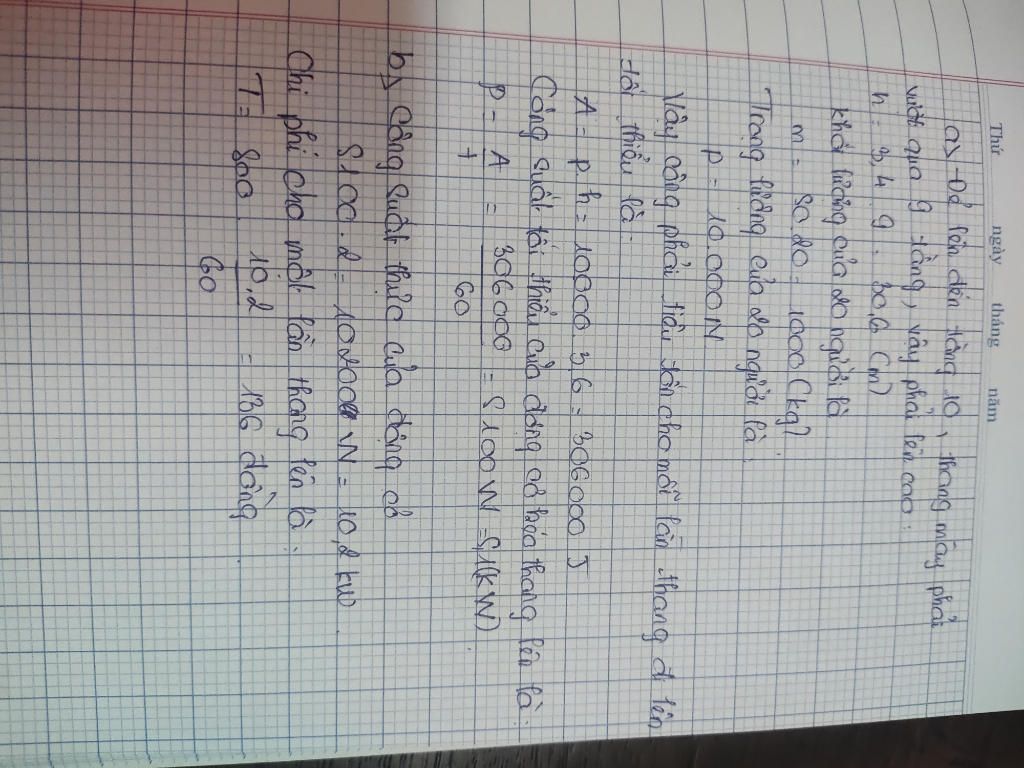 Thứ ngày tháng năm
a) -Để lên đến tầng 10, thang máy phải
vượt qua 9 tầng, vậy phải lên cao:
h = 3,4 . 9 = 30,6 (m)
Khối lượng của 20 người là
m = 50.20 = 1000 (kg)
Trọng lượng của 20 người là:
p = 10.000N
Vậy công phải tiêu tốn cho mỗi lần thang đi lên
tối thiểu là:
A = p h = 10000 . 3,6 = 306000 J
Công suất tối thiểu của động cơ kéo thang lên là:
P = A/t = 306000/60 = 5100W = 5,1(kW)
b) Công suất thực của động cơ
5100.2 = 10200 W = 10,2 kW.
Chi phí cho một lần thang lên là:
T = 800 . 10,2/60 = 136 đồng